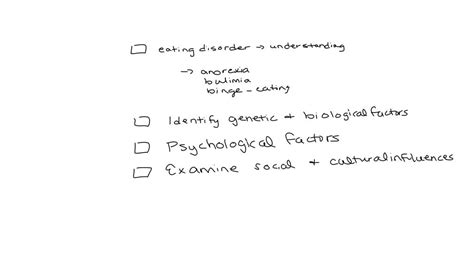 ☐ eating disorder → understanding
→ anorexia
bulimia
binge-eating
☐ Identify genetic + biological factors
☐ Psychological factors
☐ Examine social + cultural influences